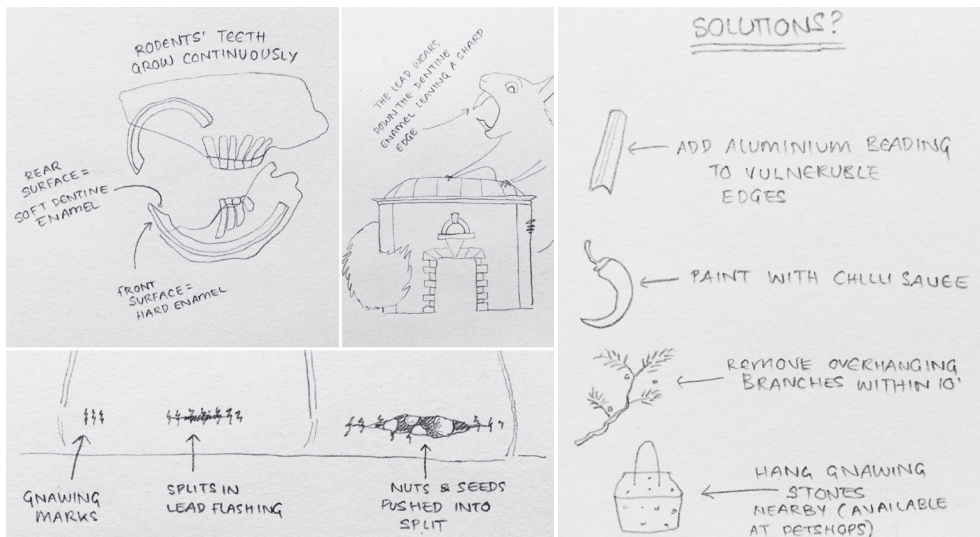 RODENTS' TEETH
GROW CONTINUOUSLY
REAR
SURFACE =
SOFT DENTINE
ENAMEL
FRONT
SURFACE =
HARD ENAMEL
THE LEAD WEARS
DOWN THE DENTINE
ENAMEL LEAVING A SHARP
EDGE
GNAWING
MARKS
SPLITS IN
LEAD FLASHING
NUTS & SEEDS
PUSHED INTO
SPLIT
SOLUTIONS?
ADD ALUMINIUM BEADING
TO VULNERUBLE
EDGES
PAINT WITH CHILLI SAUCE
REMOVE OVERHANGING
BRANCHES WITHIN 10'
HANG GNAWING
STONES
NEARBY (AVAILABLE
AT PETSHOPS)